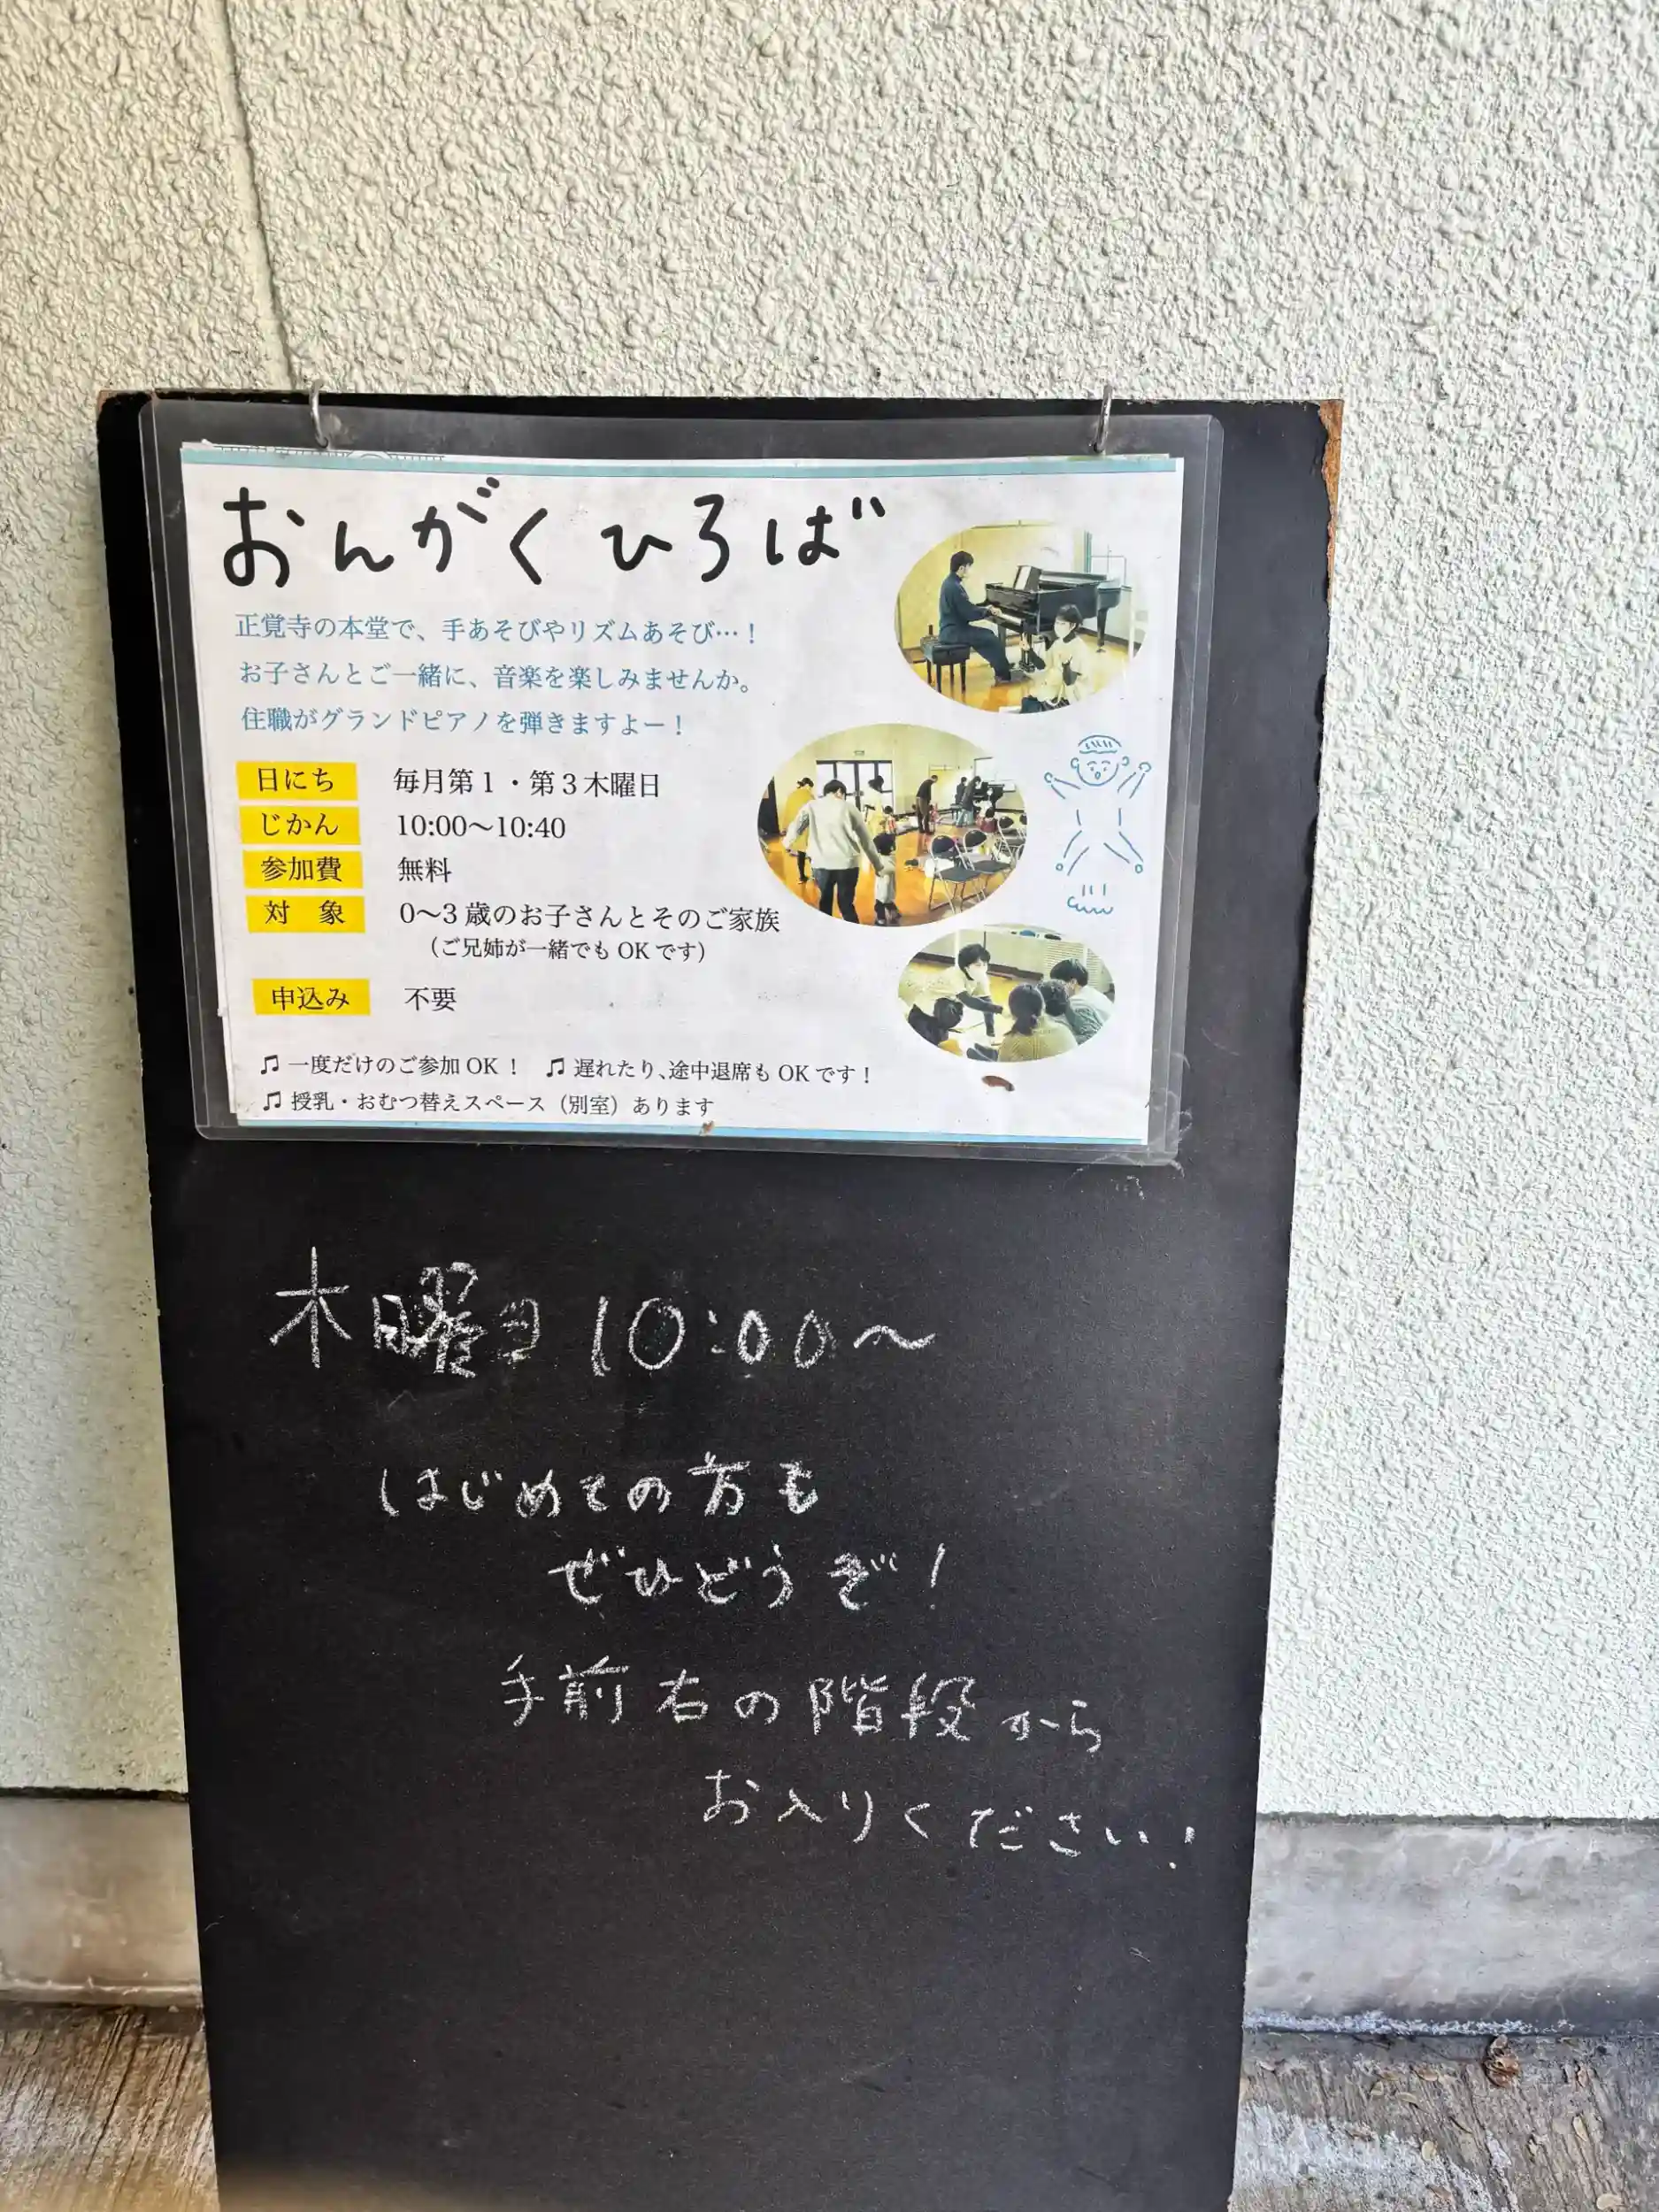 おんがくひろば
正覚寺の本堂で、手あそびやリズムあそび…！
お子さんとご一緒に、音楽を楽しみませんか。
住職がグランドピアノを弾きますよー！
日にち 毎月第1・第3木曜日
じかん 10:00〜10:40
参加費 無料
対象 0〜3歳のお子さんとそのご家族
（ご兄姉が一緒でもOKです）
申込み 不要
♫ 一度だけのご参加OK！ ♫ 遅れたり、途中退席もOKです！
♫ 授乳・おむつ替えスペース（別室）あります
木曜日 10:00〜
はじめての方も
ぜひどうぞ！
手前右の階段から
お入りください！